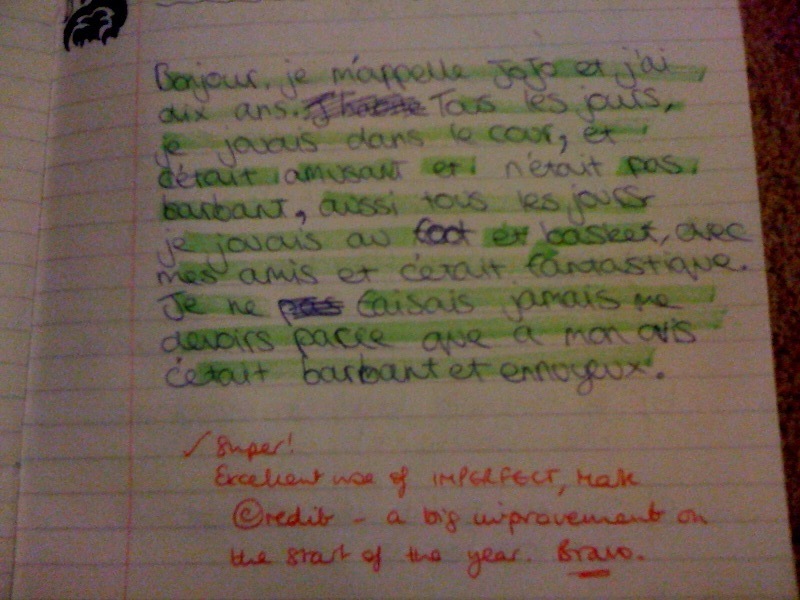 Bonjour, je m'appelle JoJo et j'ai
dix ans. Tous les jours,
je jouais dans le cour, et
c'était amusant et n'était pas
barbant, aussi tous les jours
je jouais au foot et basket, avec
mes amis et c'était fantastique.
Je ne pas faisais jamais me
devoirs parce que à mon avis
c'était barbant et ennuyeux.
✓ Super!
Excellent use of IMPERFECT,
©redit - a big improvement on
the start of the year. Bravo.